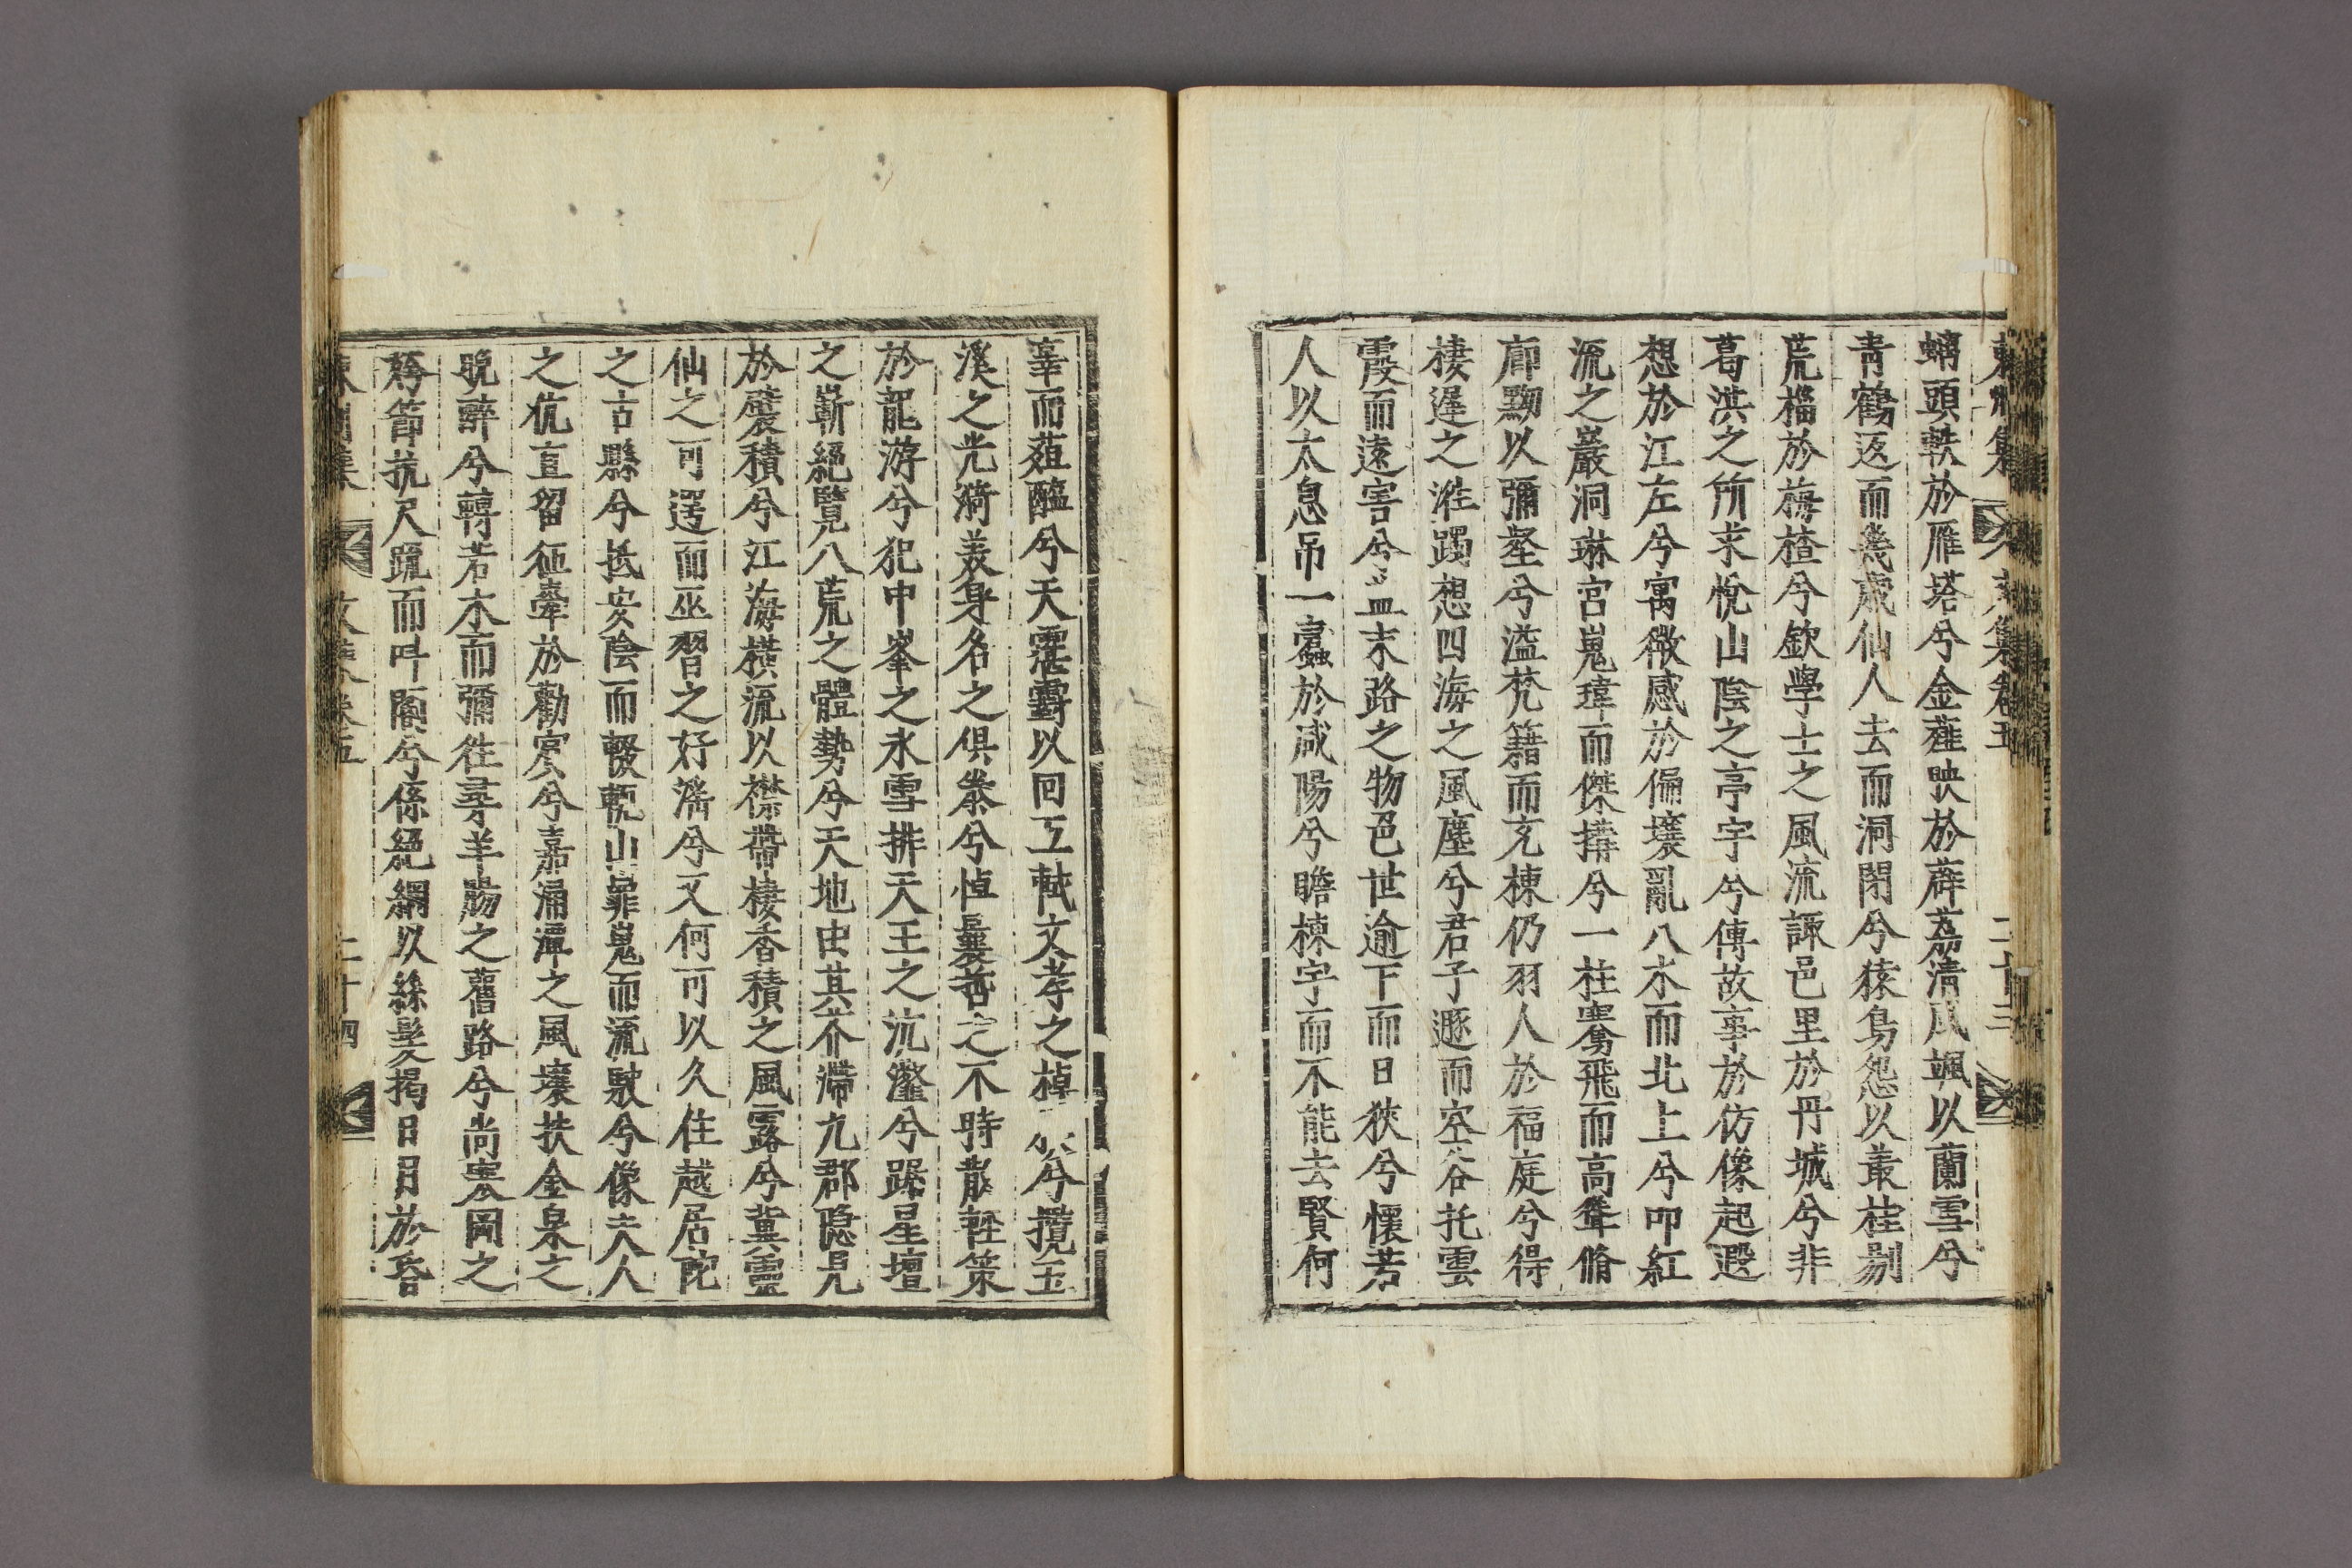 文集卷五
二十三
螭頭軼於雁塔兮金薤映於薜荔淸風颯以蘭雪兮
靑鶴返而幾歲仙人去而洞閉兮猿鳥怨以叢桂剔
荒樒於梅楂兮欽學士之風流諏邑里於丹城兮非
葛洪之所求悅山陰之亭宇兮傳故事於仿像起遐
想於江左兮寓微感於偏壤亂八水而北上兮叩紅
流之巖洞琳宮嵬瑋而傑搆兮一柱騫飛而高聳脩
廊黝以彌壑兮溢梵籍而充棟仍羽人於福庭兮得
棲遲之涯躅想四海之風塵兮君子遯而空谷托雲
霞而遠害兮 末路之物色世逾下而日狹兮懷若
人以太息吊一蠹於咸陽兮瞻棟宇而不能去賢何
辜而葅醢兮天霑霨以回互軾文孝之棹 兮攬玉
溪之光漪羨身名之俱榮兮悼曩哲之不時散輕策
於龍游兮犯中峯之氷雪排天王之沆瀣兮躡星壇
之嶄絕覽八荒之體勢兮天地由其介滯九郡隱見
於襞積兮江海橫流以襟帶棲香積之風露兮冀靈
仙之可遌而巫習之好滛兮又何可以久住越居陀
之古縣兮抵安陰而輟軏山巃嵬而流駛兮像夫人
之伉直留征牽於勸賓兮嘉涌潭之風壤扶金泉之
晩醉兮轉若水而彌徃尋羊膓之舊路兮尙褰岡之
嫮節抗尺䟽而叫閽兮係絕綱以絲髮揭日月於昏
文集卷五
二十四